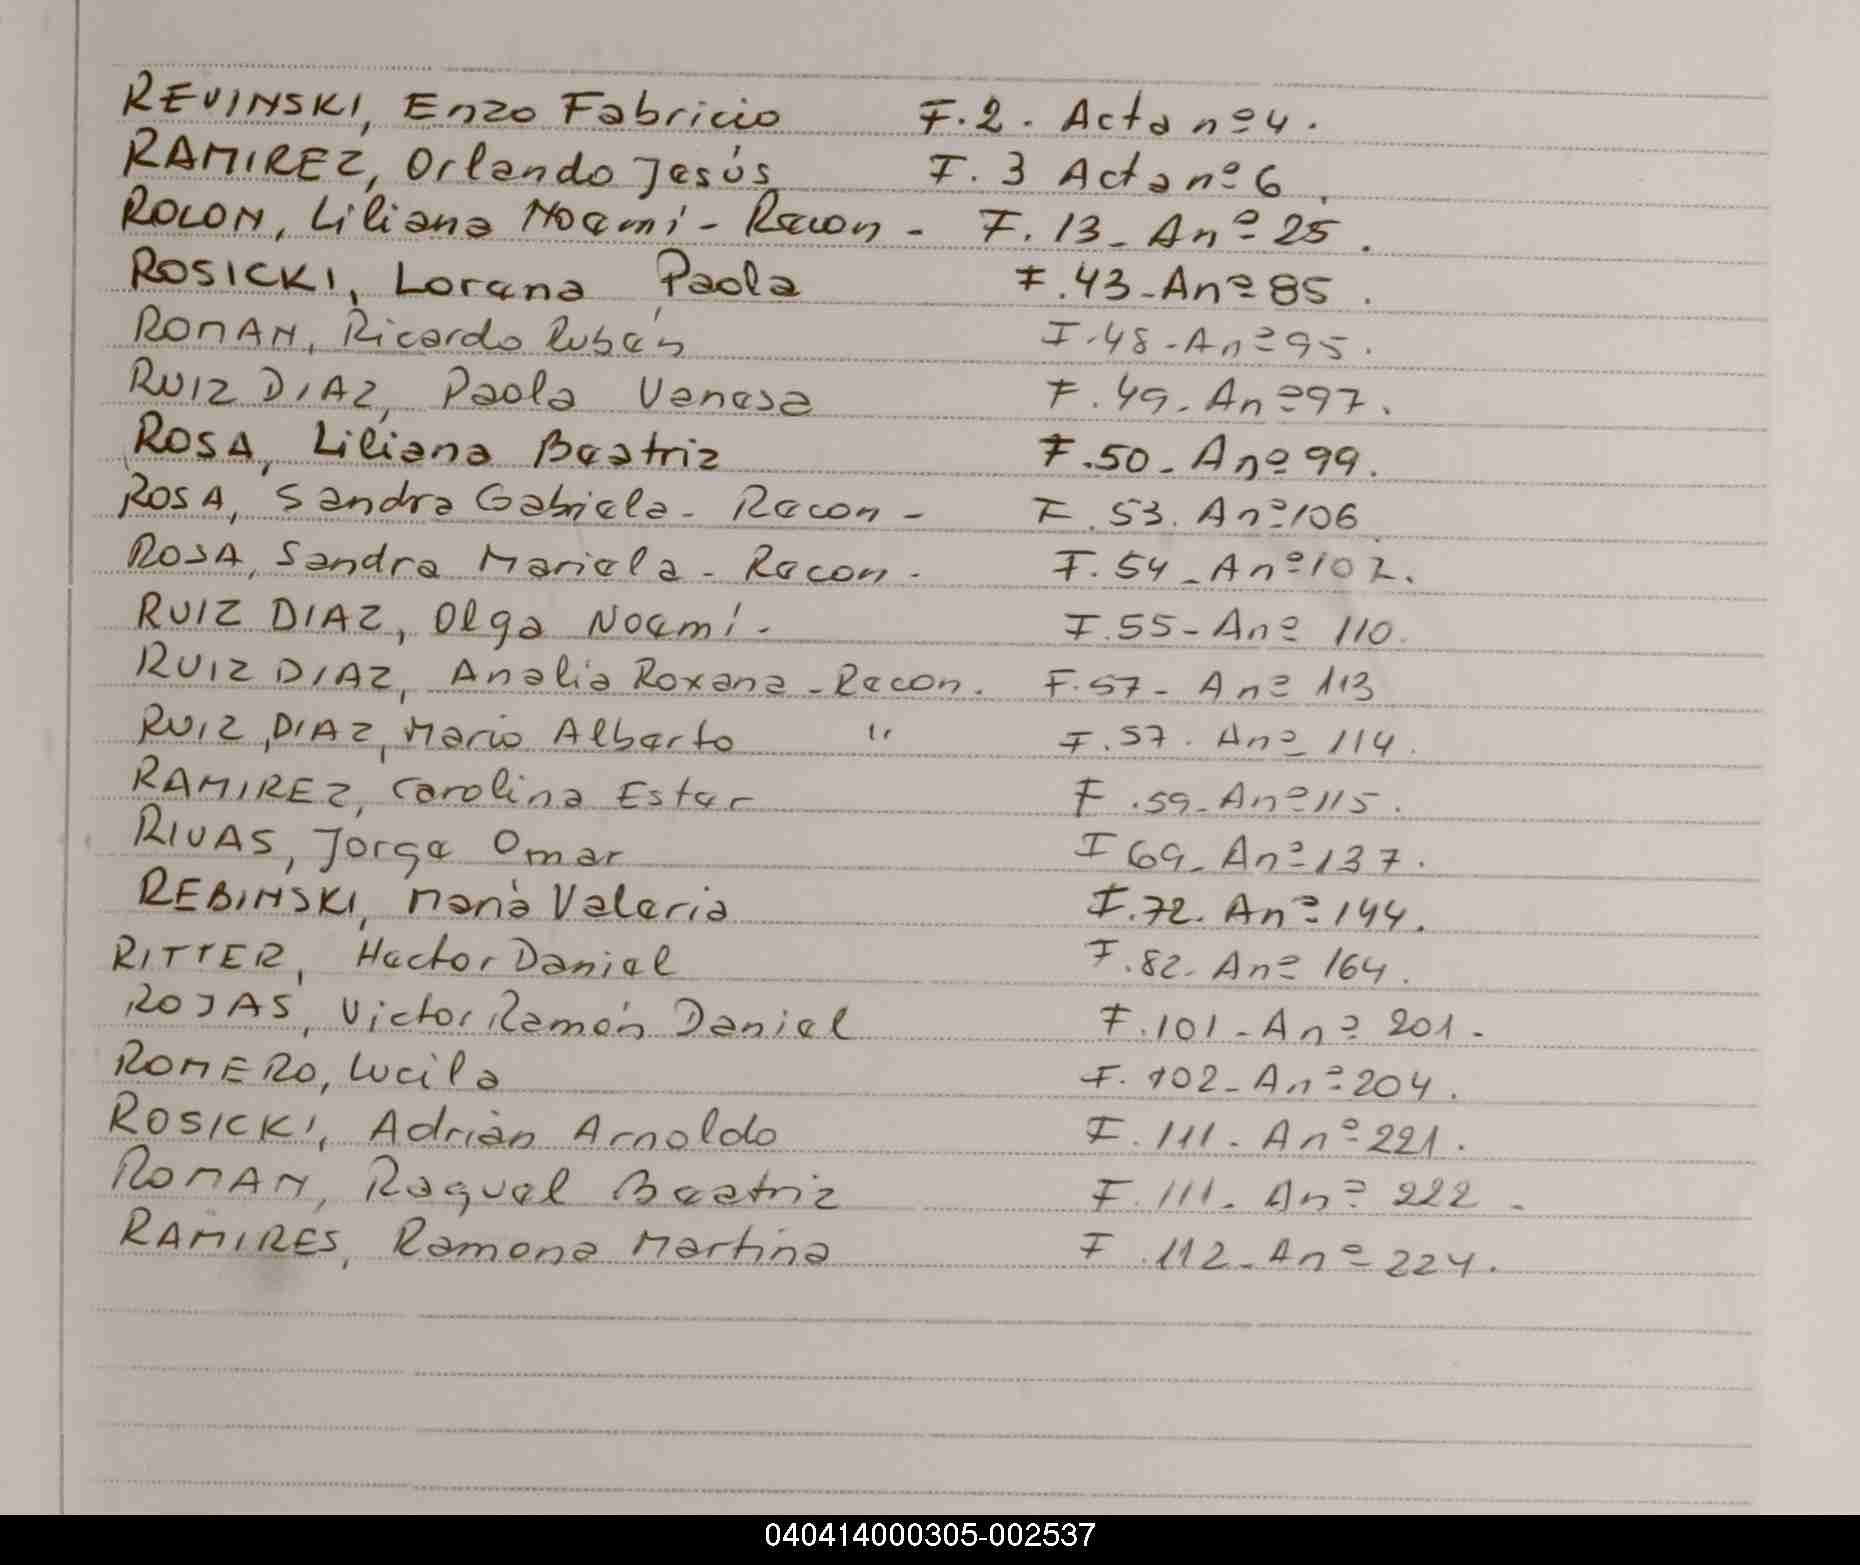 REVINSKI, Enzo Fabricio F.2. Acta nº 4.
RAMIREZ, Orlando Jesús F. 3 Acta nº 6.
ROLON, Liliana Noemí - Recon - F. 13 - A nº 25.
ROSICKI, Lorena Paola F. 43 - A nº 85.
ROMAN, Ricardo Rubén F. 48 - A nº 95.
RUIZ DIAZ, Paola Vanesa F. 49 - A nº 97.
ROSA, Liliana Beatriz F. 50 - A nº 99.
ROSA, Sandra Gabriela - Recon - F. 53. A nº 106
ROSA, Sandra Mariela - Recon - F. 54 - A nº 107.
RUIZ DIAZ, Olga Noemí - F. 55 - A nº 110.
RUIZ DIAZ, Analia Roxana - Recon. F. 57 - A nº 113
RUIZ, DIAZ, Mario Alberto " F. 57. A nº 114.
RAMIREZ, Carolina Ester F. 59 - A nº 115.
RIVAS, Jorge Omar F 69 - A nº 137.
REBINSKI, María Valeria F. 72. A nº 144.
RITTER, Hector Daniel F. 82 - A nº 164.
ROJAS, Victor Ramón Daniel F. 101 - A nº 201 -
ROMERO, Lucila F. 102 - A nº 204.
ROSICKI, Adrián Arnoldo F. 111 - A nº 221.
ROMAN, Raquel Beatriz F. 111 - A nº 222 -
RAMIRES, Ramona Martina F. 112 - A nº 224.
040414000305-002537